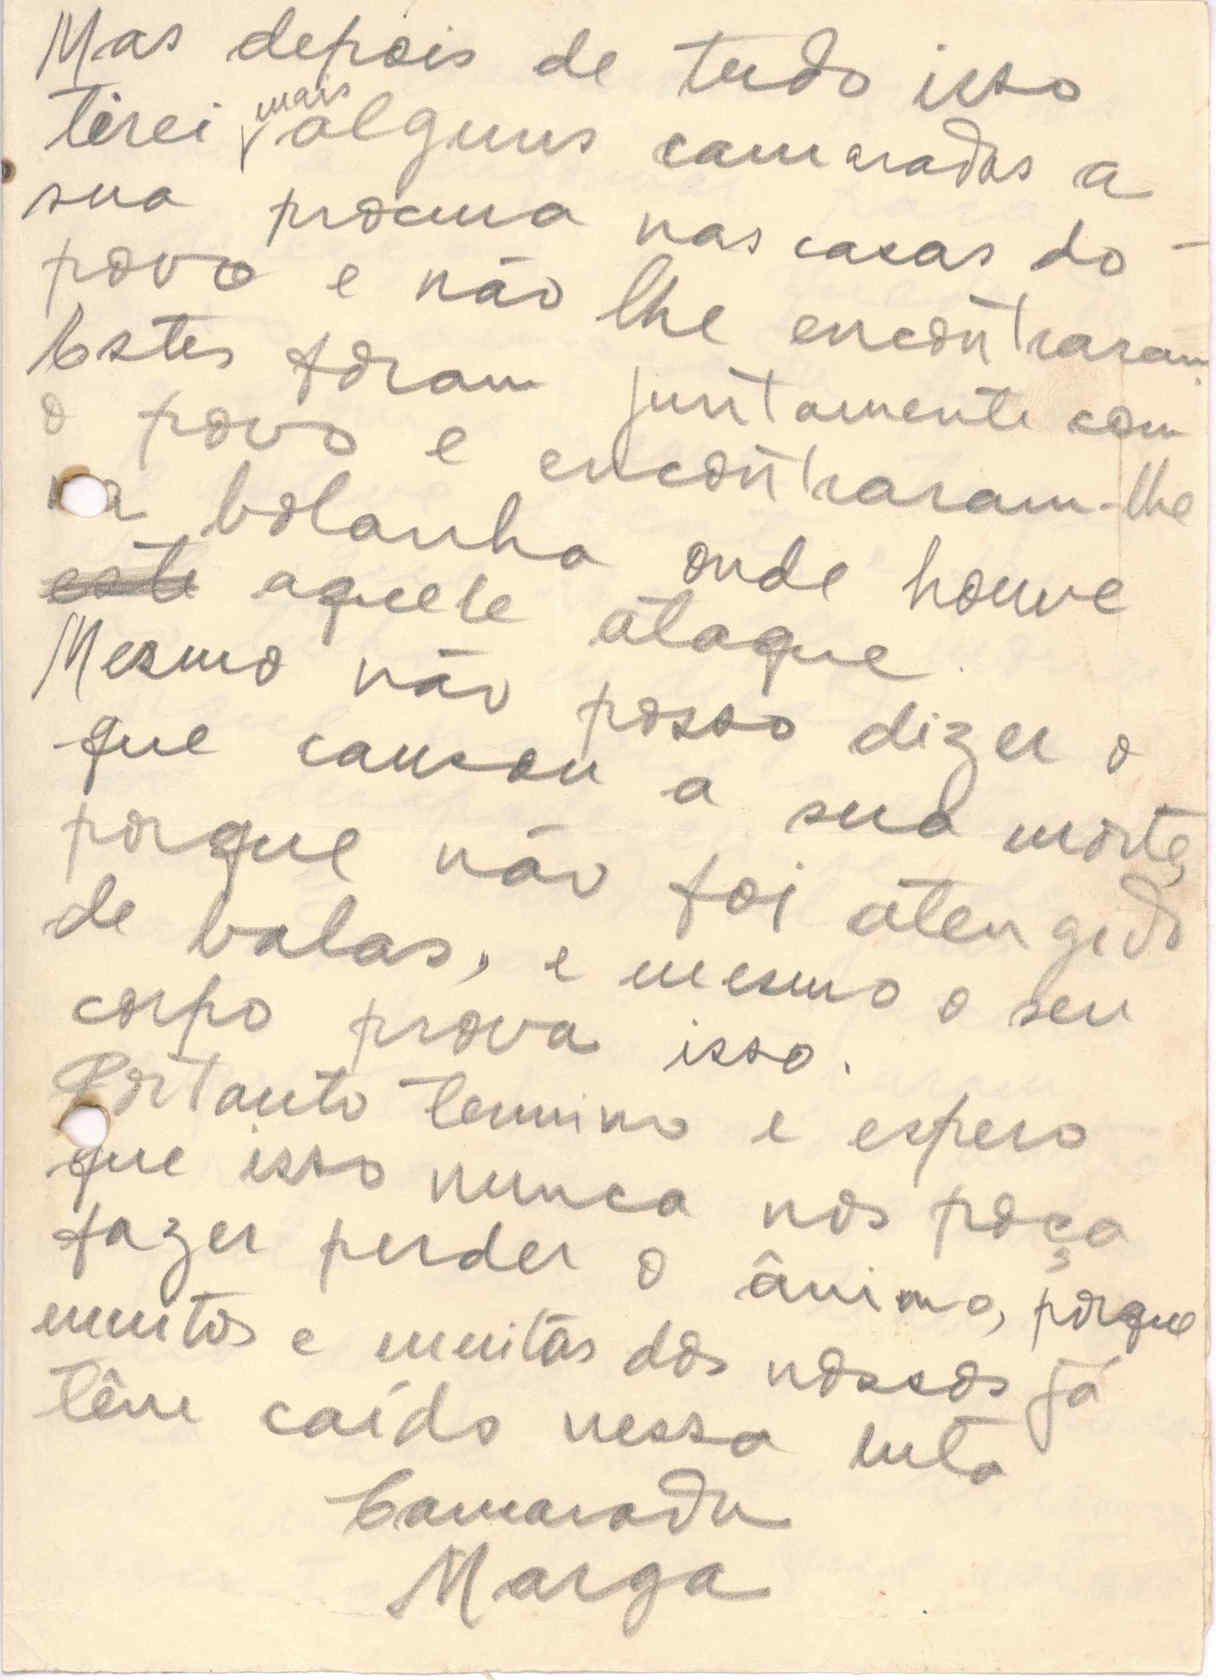 Mas depois de tudo isso
tirei mais alguns camaradas a
sua procura nas casas do
povo e não lhe encontraram.
Estes foram juntamente com
o povo e encontraram-lhe
na bolanha onde houve
este aquele ataque.
Mesmo não posso dizer o
que causou a sua morte,
porque não foi atengido
de balas, e mesmo o seu
corpo prova isso.
Portanto termino e espero
que isso nunca nos poça
fazer perder o ânimo, porque
muitos e muitas dos nossos já
têm caído nessa luta
Camarada
Marga